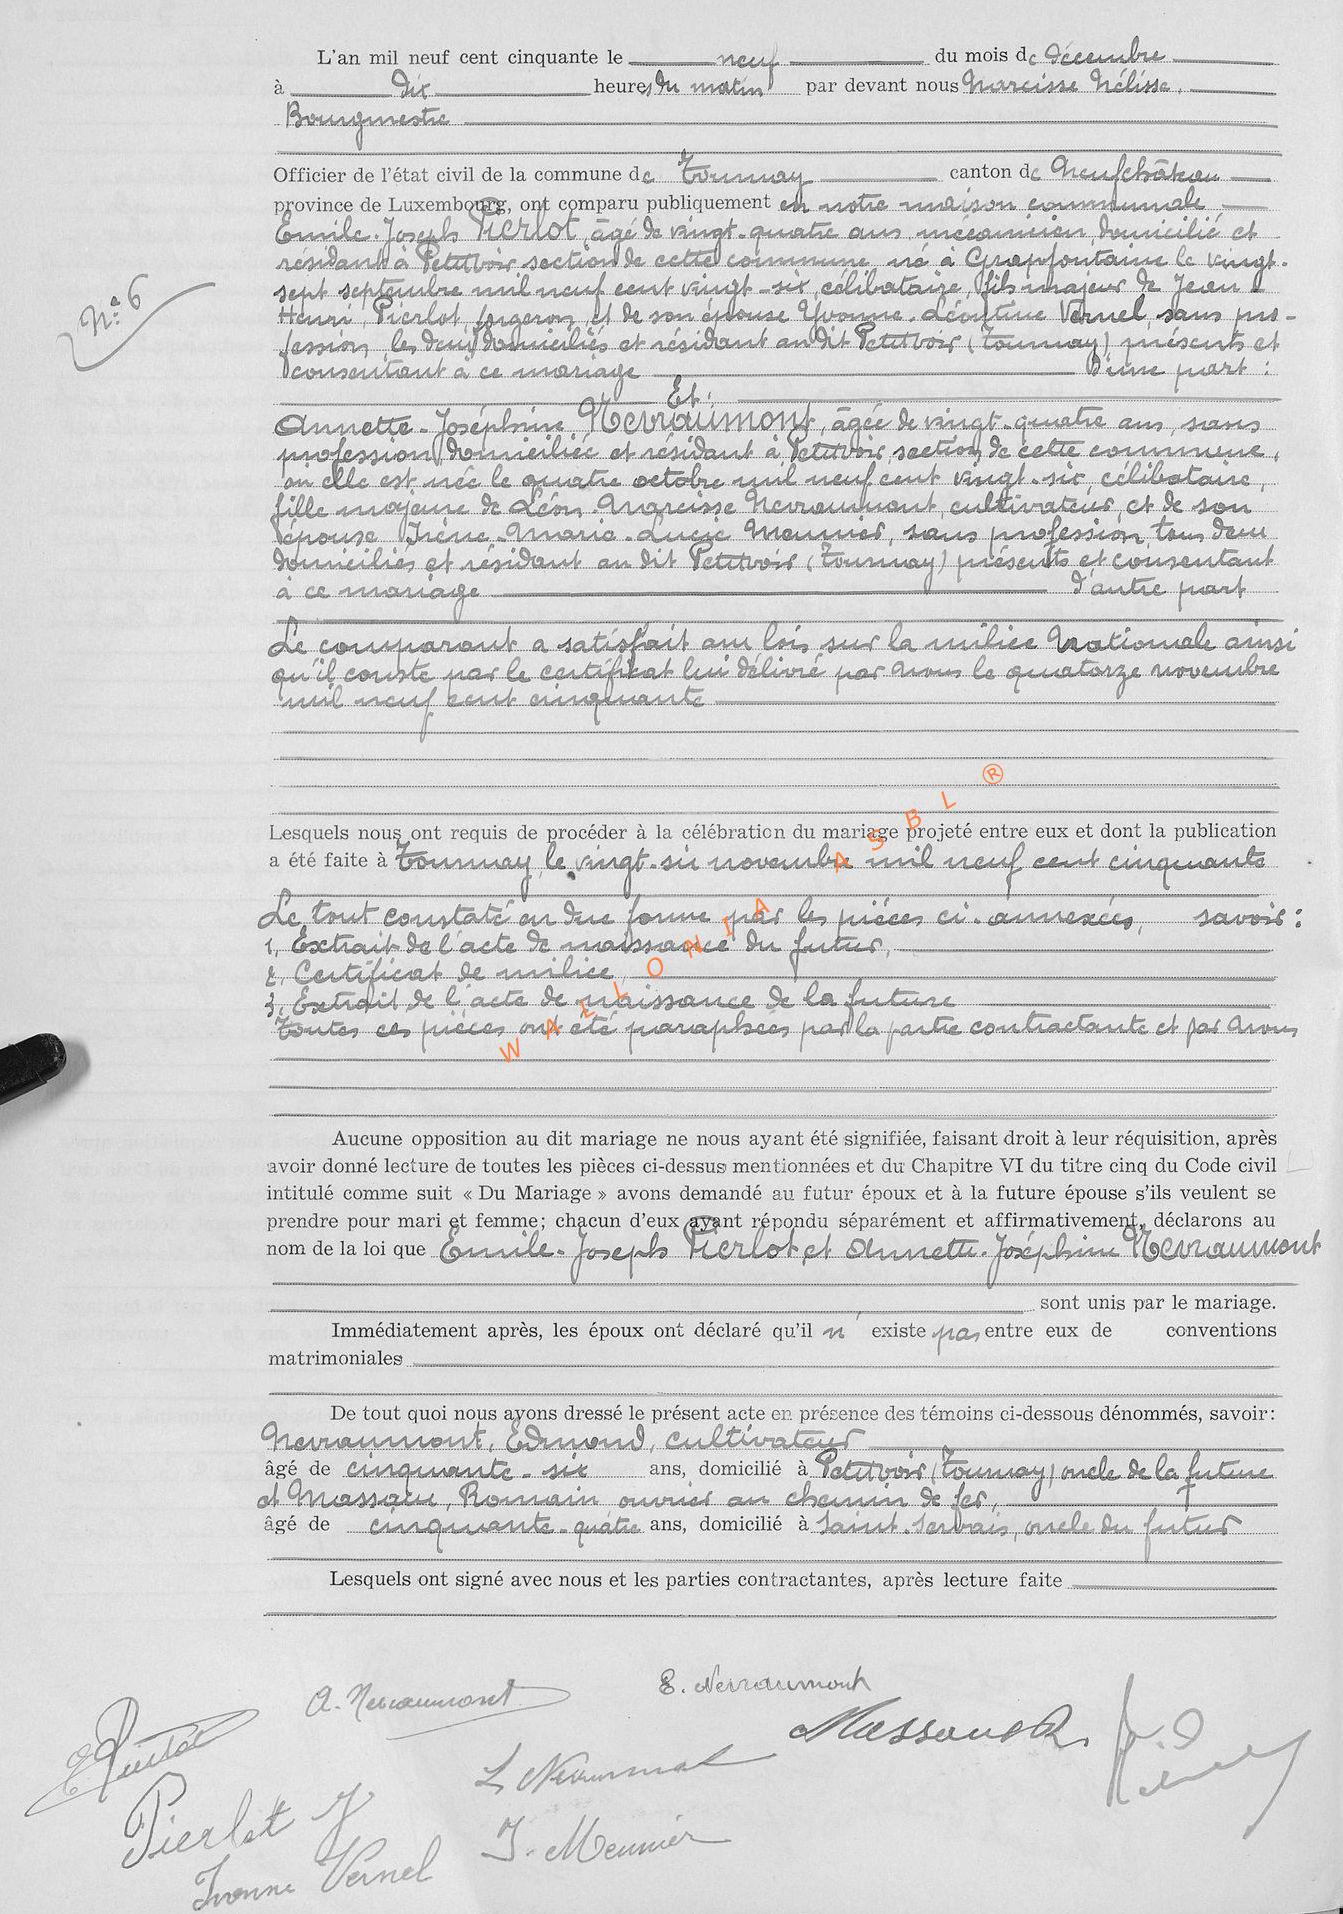 L'an mil neuf cent cinquante le neuf du mois de décembre
à dix heures du matin par devant nous Narcisse Hélisse,
Bourgmestre
Officier de l'état civil de la commune de Tournay canton de Neufchâteau
province de Luxembourg, ont comparu publiquement en notre maison communale
Emile-Joseph Pierlot, âgé de vingt-quatre ans, mécanicien, domicilié et
résidant à Petitvoir section de cette commune né à Grapfontaine le vingt-
sept septembre mil neuf cent vingt-six, célibataire, fils majeur de Jean-
Henri Pierlot, forgeron, et de son épouse Yvonne-Léontine Vernel, sans pro-
fession, les deux domiciliés et résidant au dit Petitvoir (Tournay) présents et
consentant à ce mariage D'une part :
Et :
N° 6
Annette-Joséphine Nevraumont, âgée de vingt-quatre ans, sans
profession, domiciliée et résidant à Petitvoir, section de cette commune,
où elle est née le quatre octobre mil neuf cent vingt-six, célibataire,
fille majeure de Léon-Narcisse Nevraumont, cultivateur, et de son
épouse Irène-Marie-Lucie Meunier, sans profession, tous deux
domiciliés et résidant au dit Petitvoir (Tournay) présents et consentant
à ce mariage d'autre part
Le comparant a satisfait aux lois sur la milice Nationale ainsi
qu'il conste par le certificat lui délivré par Nous le quatorze novembre
mil neuf cent cinquante
Lesquels nous ont requis de procéder à la célébration du mariage projeté entre eux et dont la publication
a été faite à Tournay, le vingt-six novembre mil neuf cent cinquante
Le tout constaté en due forme par les pièces ci-annexées, savoir :
1, Extrait de l'acte de naissance du futur,
2, Certificat de milice
3, Extrait de l'acte de naissance de la future
Toutes ces pièces ont été paraphées par la partie contractante et par Nous
WALLONIA ASBL ®
Aucune opposition au dit mariage ne nous ayant été signifiée, faisant droit à leur réquisition, après
avoir donné lecture de toutes les pièces ci-dessus mentionnées et du Chapitre VI du titre cinq du Code civil
intitulé comme suit « Du Mariage » avons demandé au futur époux et à la future épouse s'ils veulent se
prendre pour mari et femme; chacun d'eux ayant répondu séparément et affirmativement, déclarons au
nom de la loi que Emile-Joseph Pierlot et Annette-Joséphine Nevraumont
sont unis par le mariage.
Immédiatement après, les époux ont déclaré qu'il n' existe pas entre eux de conventions
matrimoniales
De tout quoi nous avons dressé le présent acte en présence des témoins ci-dessous dénommés, savoir:
Nevraumont, Edmond, cultivateur
âgé de cinquante-six ans, domicilié à Petitvoir (Tournay) oncle de la future
et Massaux, Romain ouvrier au chemin de fer,
âgé de cinquante-quatre ans, domicilié à Saint-Servais, oncle du futur
Lesquels ont signé avec nous et les parties contractantes, après lecture faite
A. Nevraumont
E. Nevraumont
E Pierlot
Massaux R.
L Nevraumont
Pierlot J
J. Meunier
Ivonne Vernel